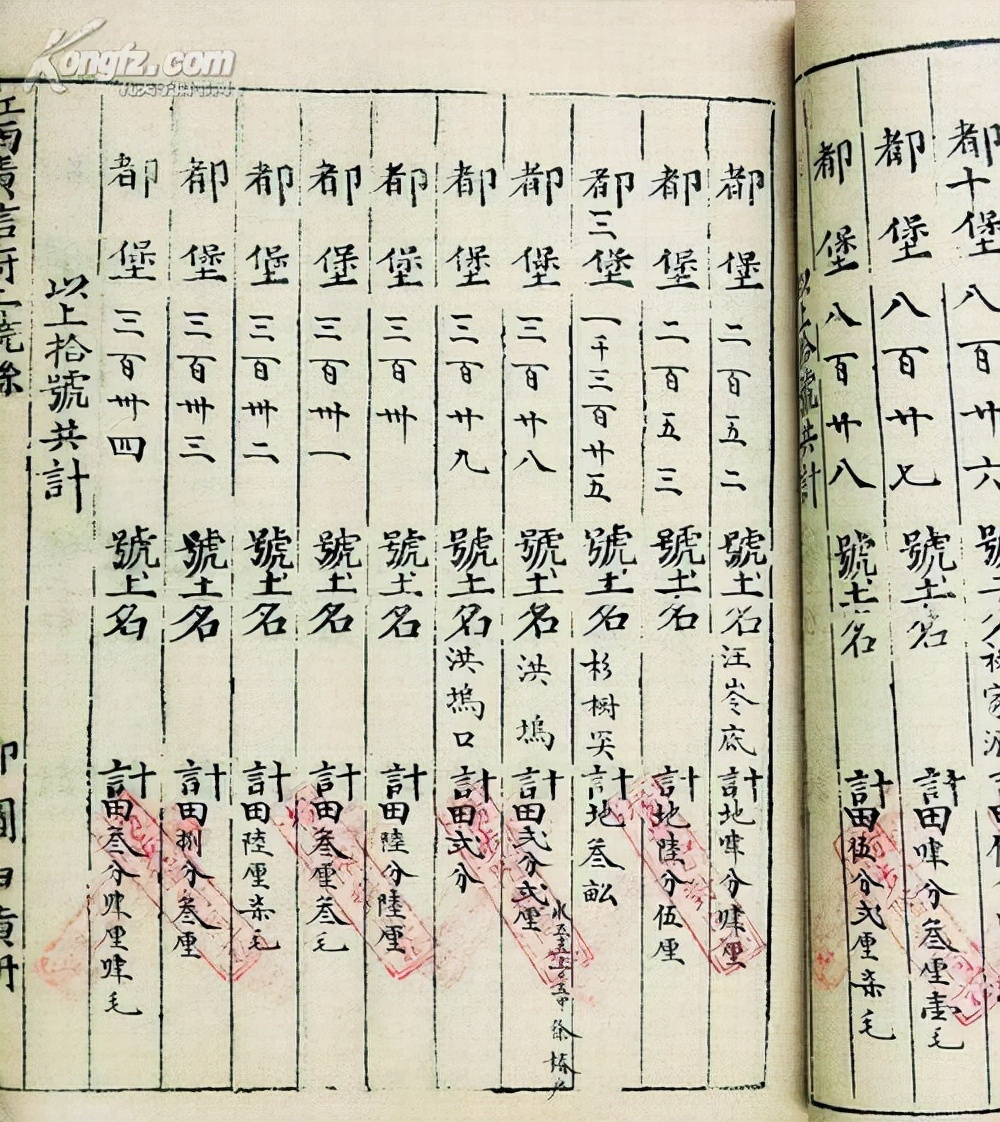 Kongfz.com
都十堡八百廿六號土名
都堡八百廿七號土名計田肆分叁厘壹毛
都堡八百廿八號土名計田伍分弍厘柒毛
以上拾號共計
都堡二百五二號土名汪岺底計地肆分肆厘
都堡二百五三號土名計地陸分伍厘
都三堡一千三百廿五號土名杉樹계計地叁畝
都堡三百廿八號土名洪塢計田弍分弍厘
都堡三百廿九號土名洪塢口計田弍分
都堡三百卅號土名計田陸分陸厘
都堡三百卅一號土名計田叁厘叁毛
都堡三百卅二號土名計田陸厘柒毛
都堡三百卅三號土名計田捌分叁厘
都堡三百卅四號土名計田叁分肆厘肆毛
以上拾號共計
江西廣信府上饒縣